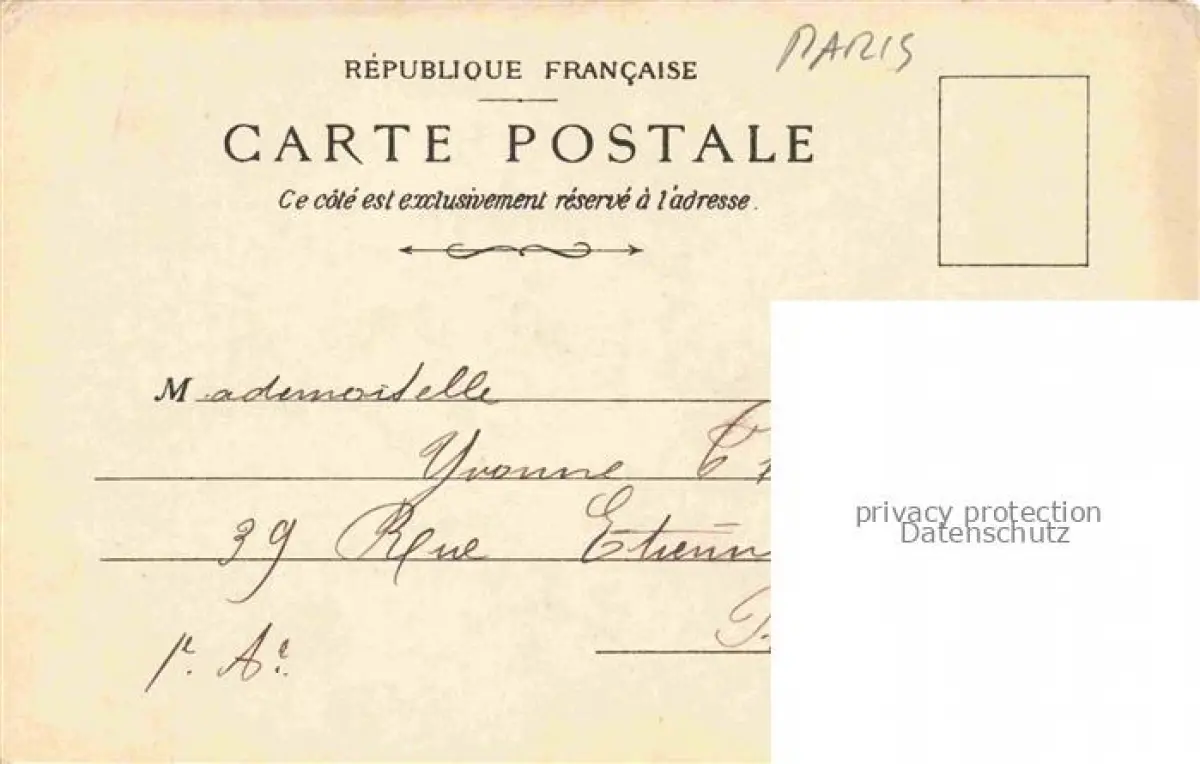 PARIS
RÉPUBLIQUE FRANÇAISE
CARTE POSTALE
Ce côté est exclusivement réservé à l'adresse.
Mademoiselle
Yvonne
39 Rue
privacy protection
Datenschutz